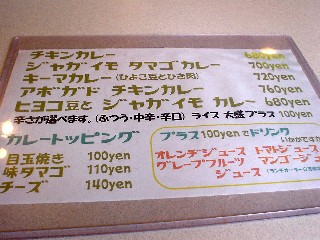 チキンカレー 680yen
ジャガイモ タマゴ カレー 700yen
キーマカレー (ひよこ豆とひき肉) 720yen
アボガド チキンカレー 760yen
ヒヨコ豆と ジャガイモ カレー 680yen
辛さが選べます。(ふつう・中辛・辛口) ライス 大盛プラス 100yen
カレートッピング
目玉焼き 100yen
味タマゴ 110yen
チーズ 140yen
プラス 100yenで ドリンク
いかがですか
オレンジジュース トマトジュース
グレープフルーツ マンゴージュース
ジュース